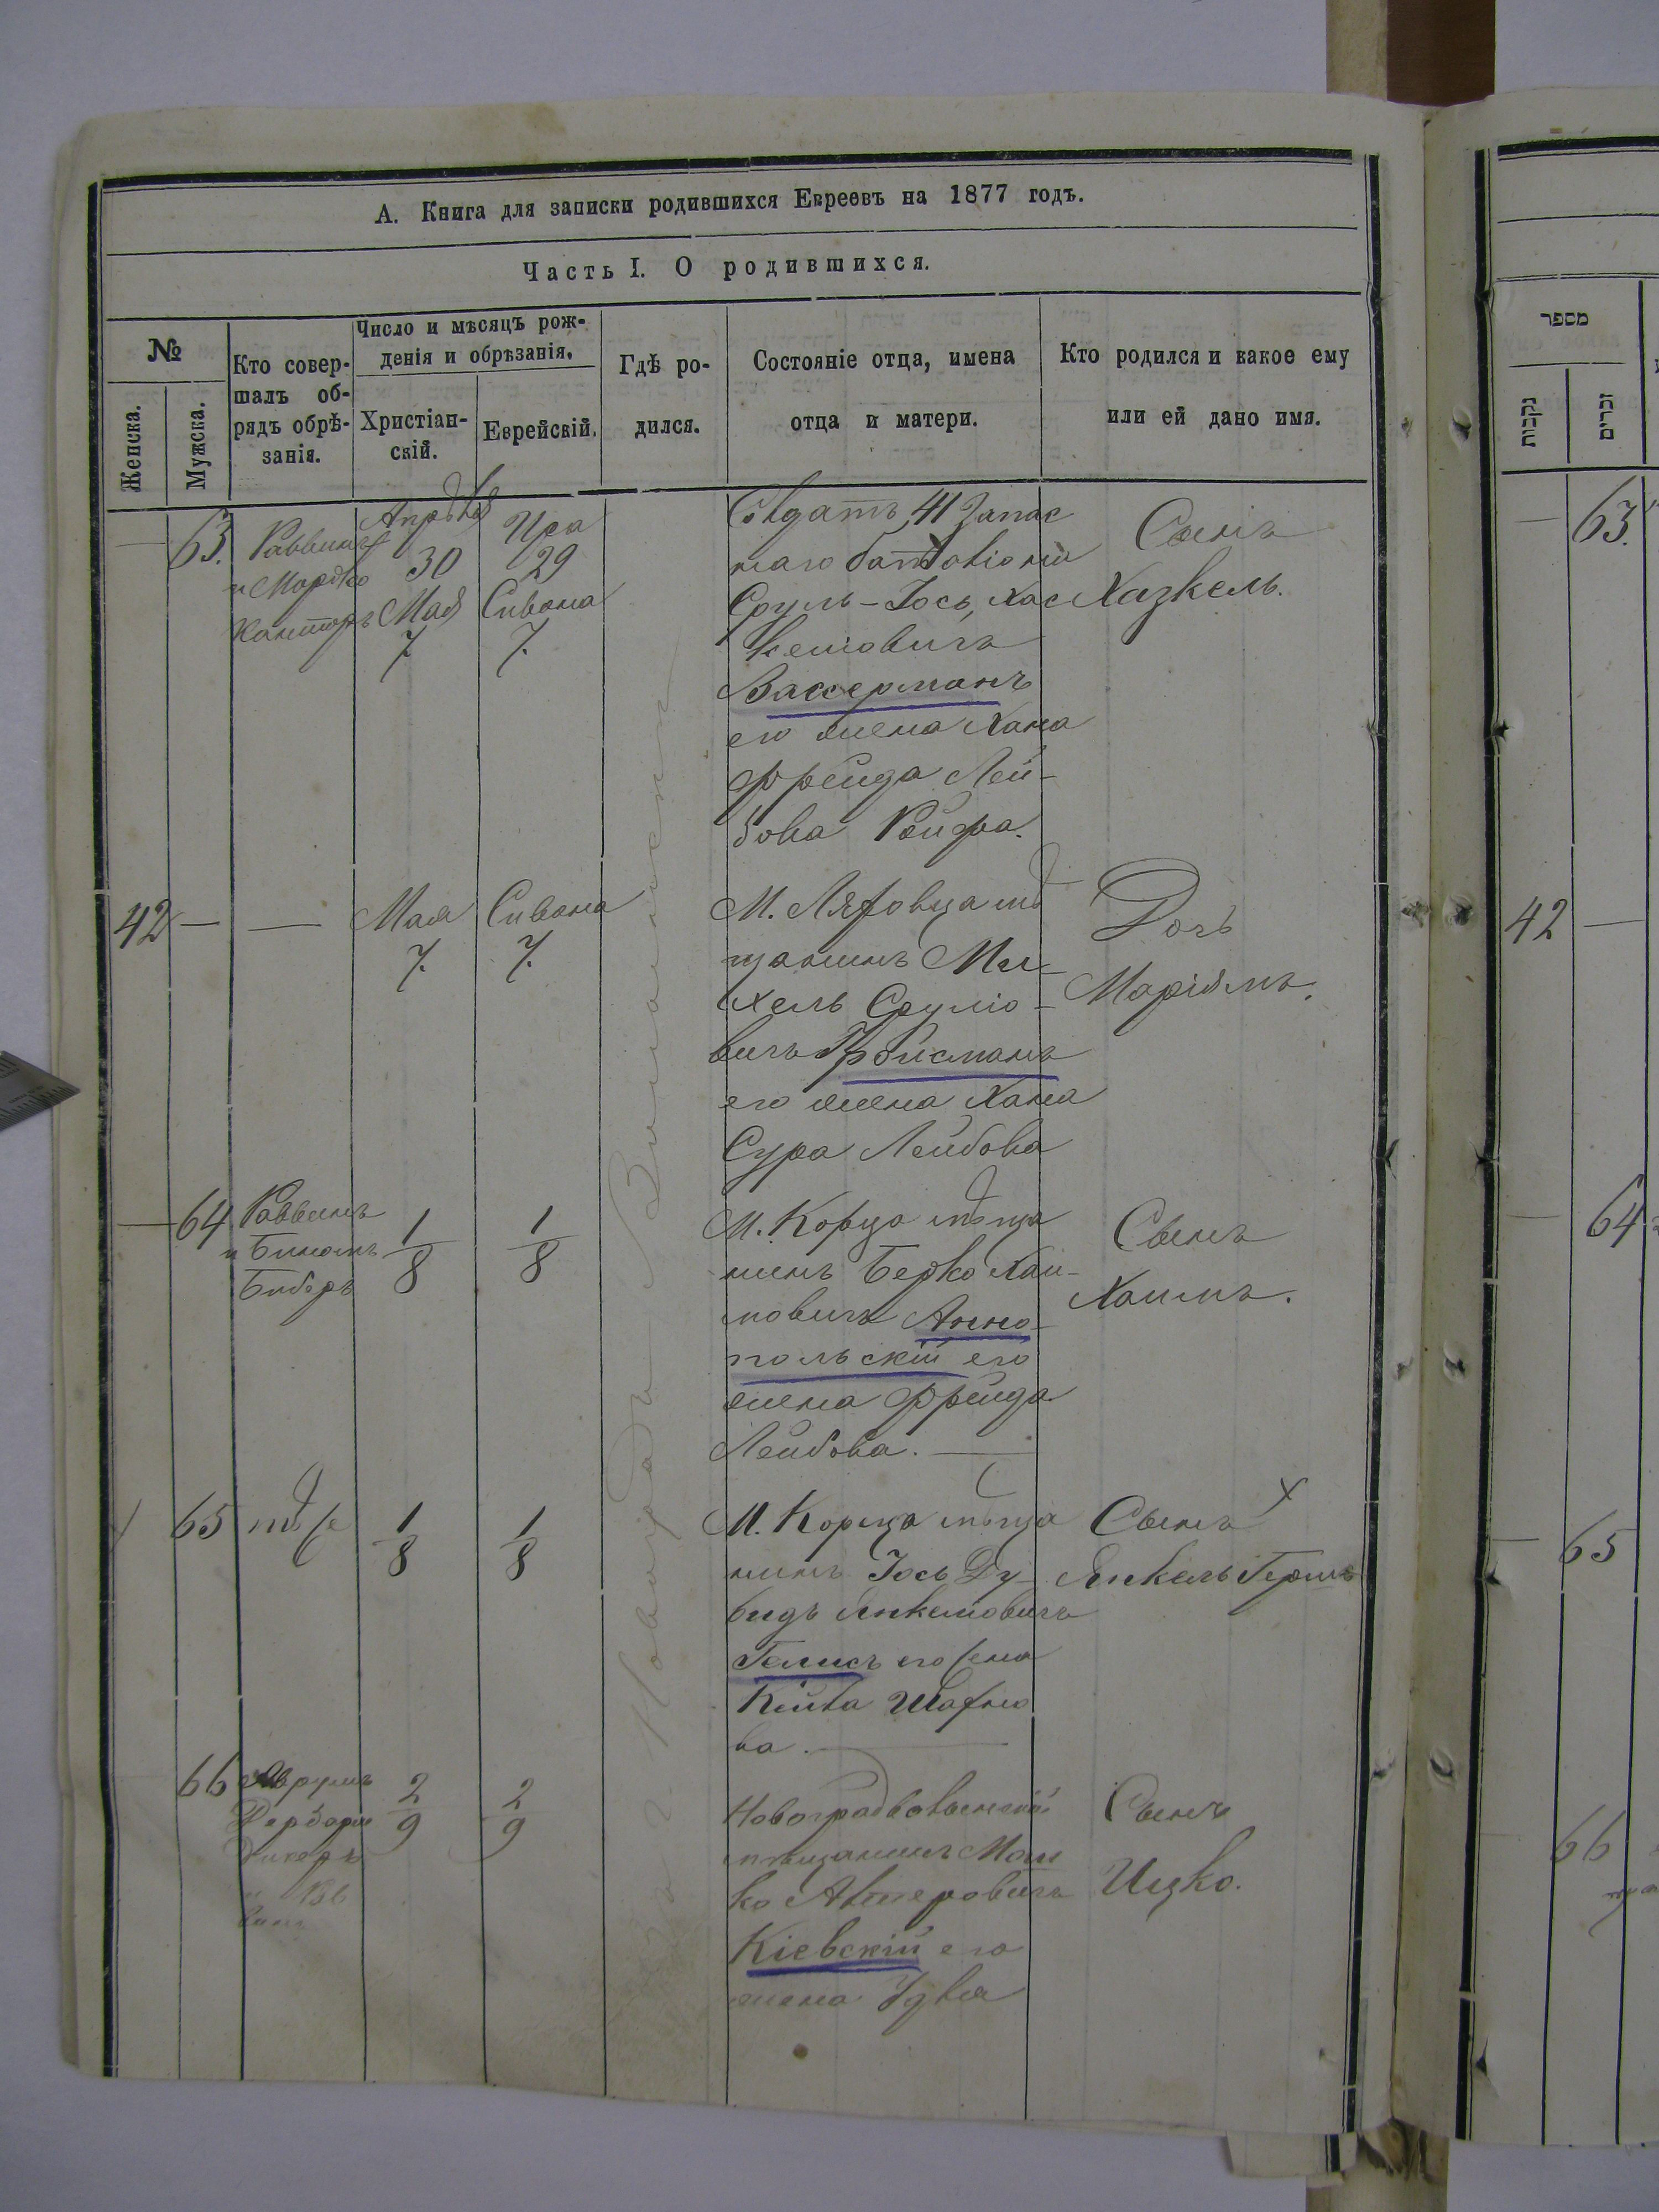 А. Книга для записки родившихся Евреевъ на 1877 годъ.
Часть I. О родившихся.
№
Женска.
Мужска.
Кто совер-
шалъ об-
рядъ обрѣ-
занія.
Число и мѣсяцъ рож-
денія и обрѣзанія.
Христіан-
скій.
Еврейскій.
Гдѣ ро-
дился.
Состояніе отца, имена
отца и матери.
Кто родился и какое ему
или ей дано имя.
מספר
נקבות
זכרים
Новоградъ Волынскъ
—
63.
Раввинъ
и Мордко
Канторъ
Апрѣля
30
Мая
7.
Ира
29
Сивона
7.
Солдатъ 41 Запас
наго баталіона
Сруль-Іось Хас
келiовичъ
Вассерманъ
его жена Хана
Фрейда Лей-
бова Ройфа.
Сынъ
Хазкель.
63.
42
—
—
Мая
7.
Сивона
7.
М. Ляховца мѣ
щанинъ Ме-
хель Сруліо-
вичъ Гройсманъ
его жена Хана
Сура Лейбова
Дочь
Маріямъ.
42
—
64
Раввинъ
и Биномъ
Биберъ
1
8
1
8
М. Корца мѣща
нинъ Берко Хаи-
мовичъ Анно-
польскій его
жена Фрейда
Лейбова.
Сынъ
Хаимъ.
64
65
тѣже
1
8
1
8
М. Корца мѣща
нинъ Іось Ду-
видъ Янкелiовичъ
Гелисъ его жена
Кейла Шафно
ва.
Сынъ
Янкель Герш
65
66
Аврумъ
2
9
2
9
Новоградволынскій
мѣщанинъ Мош
ко Алтеровичъ
Кіевскій его
жена Удля
Сынъ
Ицко.
66